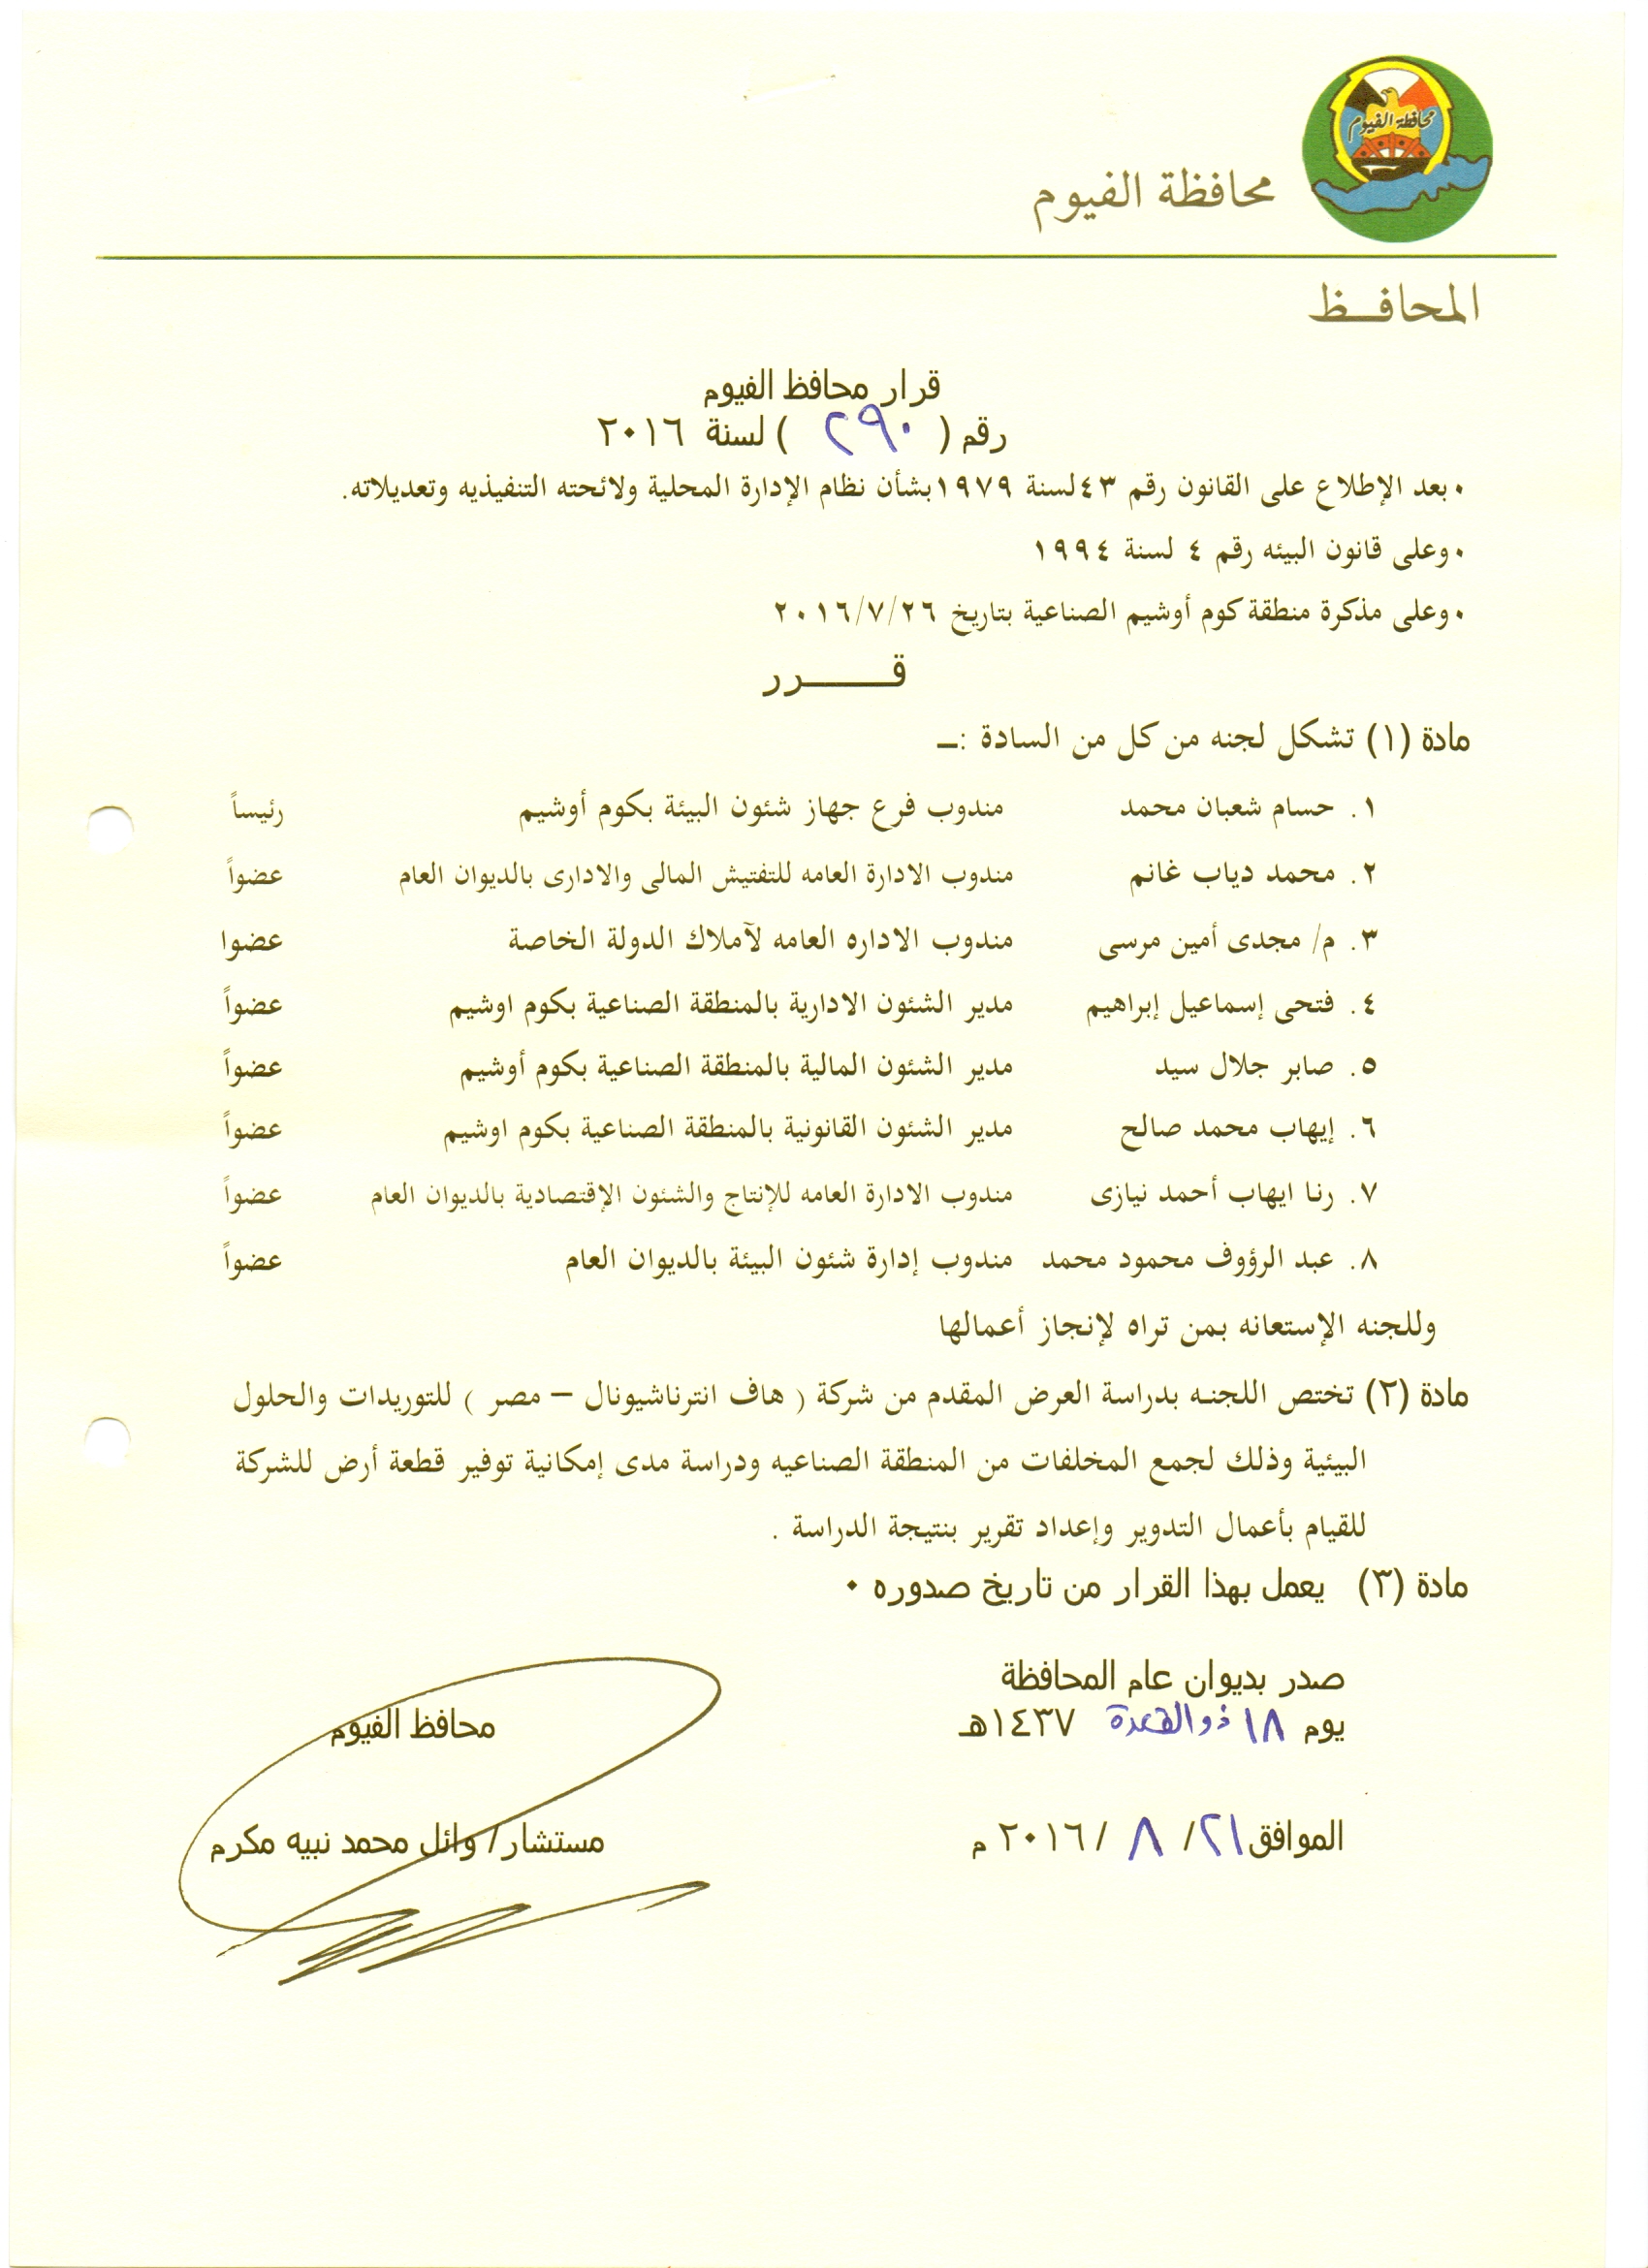 محافظة الفيوم
محافظة الفيوم
المحافــظ
قرار محافظ الفيوم
رقم ( ٢٩٠ ) لسنة ٢٠١٦
• بعد الإطلاع على القانون رقم ٤٣ لسنة ١٩٧٩ بشأن نظام الإدارة المحلية ولائحته التنفيذيه وتعديلاته.
• وعلى قانون البيئه رقم ٤ لسنة ١٩٩٤
• وعلى مذكرة منطقة كوم أوشيم الصناعية بتاريخ ٢٠١٦/٧/٢٦
قــــــرر
مادة (١) تشكل لجنه من كل من السادة :ــ
١. حسام شعبان محمد مندوب فرع جهاز شئون البيئة بكوم أوشيم رئيساً
٢. محمد دياب غانم مندوب الادارة العامه للتفتيش المالى والادارى بالديوان العام عضواً
٣. م/ مجدى أمين مرسى مندوب الاداره العامه لآملاك الدولة الخاصة عضوا
٤. فتحى إسماعيل إبراهيم مدير الشئون الادارية بالمنطقة الصناعية بكوم اوشيم عضواً
٥. صابر جلال سيد مدير الشئون المالية بالمنطقة الصناعية بكوم أوشيم عضواً
٦. إيهاب محمد صالح مدير الشئون القانونية بالمنطقة الصناعية بكوم اوشيم عضواً
٧. رنا ايهاب أحمد نيازى مندوب الادارة العامه للإنتاج والشئون الإقتصادية بالديوان العام عضواً
٨. عبد الرؤوف محمود محمد مندوب إدارة شئون البيئة بالديوان العام عضواً
وللجنه الإستعانه بمن تراه لإنجاز أعمالها
مادة (٢) تختص اللجنه بدراسة العرض المقدم من شركة ( هاف انترناشيونال – مصر ) للتوريدات والحلول
البيئية وذلك لجمع المخلفات من المنطقة الصناعيه ودراسة مدى إمكانية توفير قطعة أرض للشركة
للقيام بأعمال التدوير وإعداد تقرير بنتيجة الدراسة .
مادة (٣) يعمل بهذا القرار من تاريخ صدوره •
صدر بديوان عام المحافظة
يوم ١٨ ذو القعدة ١٤٣٧هـ
محافظ الفيوم
الموافق ٢١/ ٨ /٢٠١٦ م
مستشار/ وائل محمد نبيه مكرم